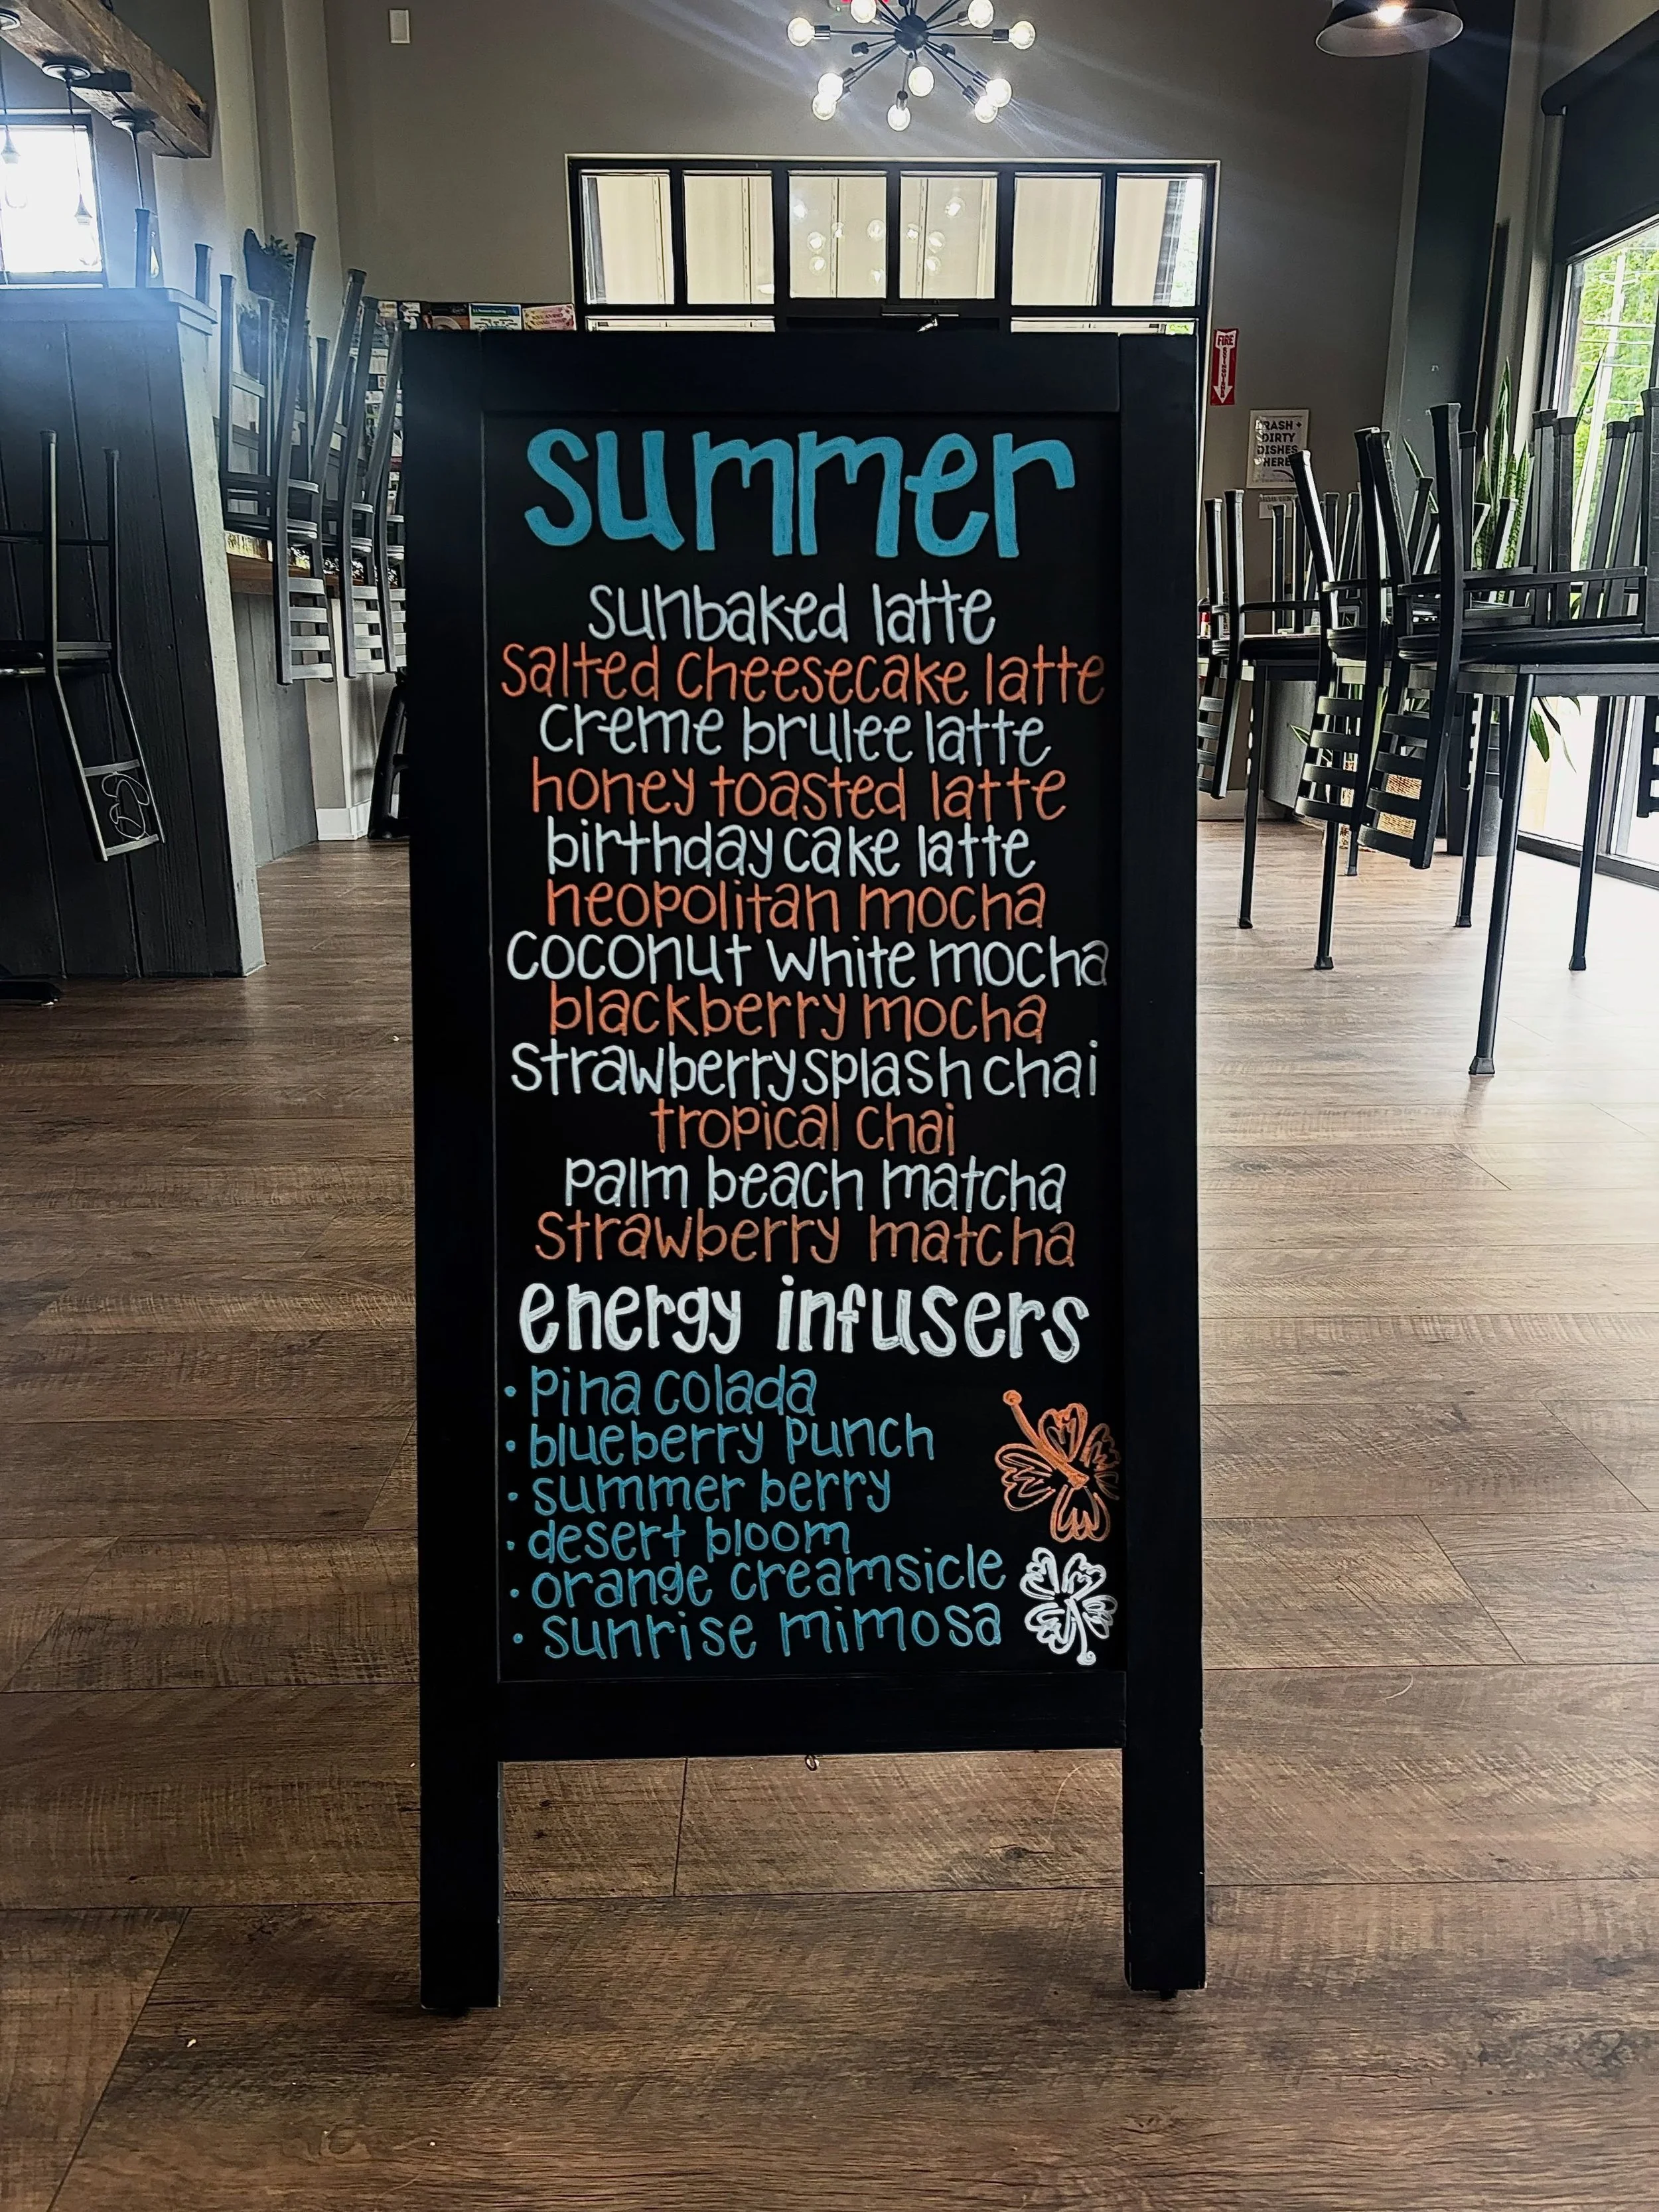 FIRE
TRASH +
DIRTY
DISHES
HERE
summer
sunbaked latte
salted cheesecake latte
creme brulee latte
honey toasted latte
birthday cake latte
neopolitan mocha
coconut white mocha
blackberry mocha
strawberry splash chai
tropical chai
palm beach matcha
strawberry matcha
energy infusers
• pina colada
• blueberry punch
• summer berry
• desert bloom
• orange creamsicle
• sunrise mimosa